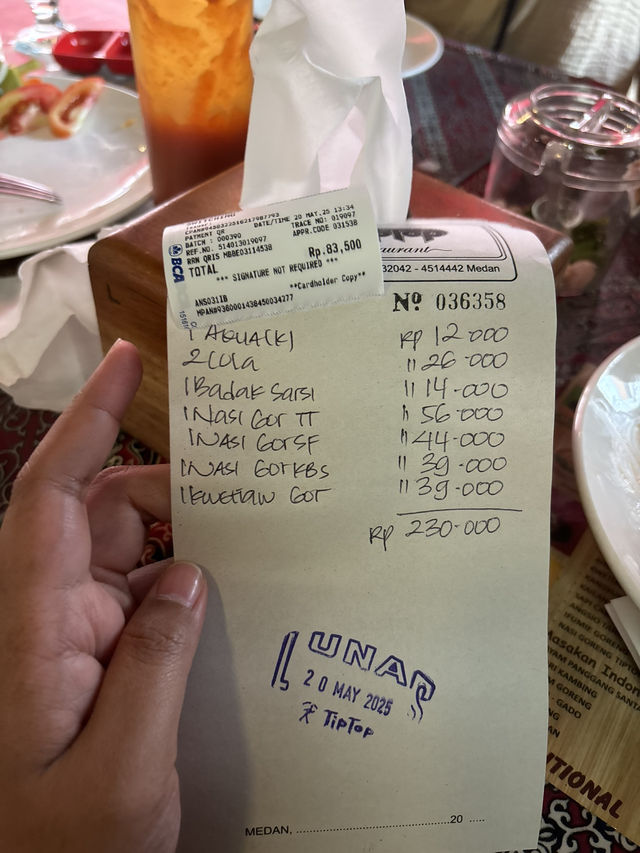 DATE/TIME 20 MAY.25 13:34
PAYMENT QR TRACE NO: 019097
BATCH : 000390 APPR.CODE 031538
REF NO. 514013019097
RRN QRIS MBBE03114538
TOTAL Rp.83,500
*** SIGNATURE NOT REQUIRED ***
**Cardholder Copy**
ANS0311B
MPAN#9360001438450034277
BCA
Restaurant
32042 - 4514442 Medan
Nº 036358
1 AQUA (K) Rp 12.000
2 COLA " 26.000
1 Badak Sarsi " 14.000
1 Nasi Gor TT " 56.000
1 NASI Gor SF " 44.000
1 NASI Gor KBS " 39.000
1 KWETIAW GOR " 39.000
Rp 230.000
LUNAS
20 MAY 2025
TipTop
MEDAN, 20
Masakan Indon
AYAM PANGGANG SANTA
KAMBING
GORENG
GADO